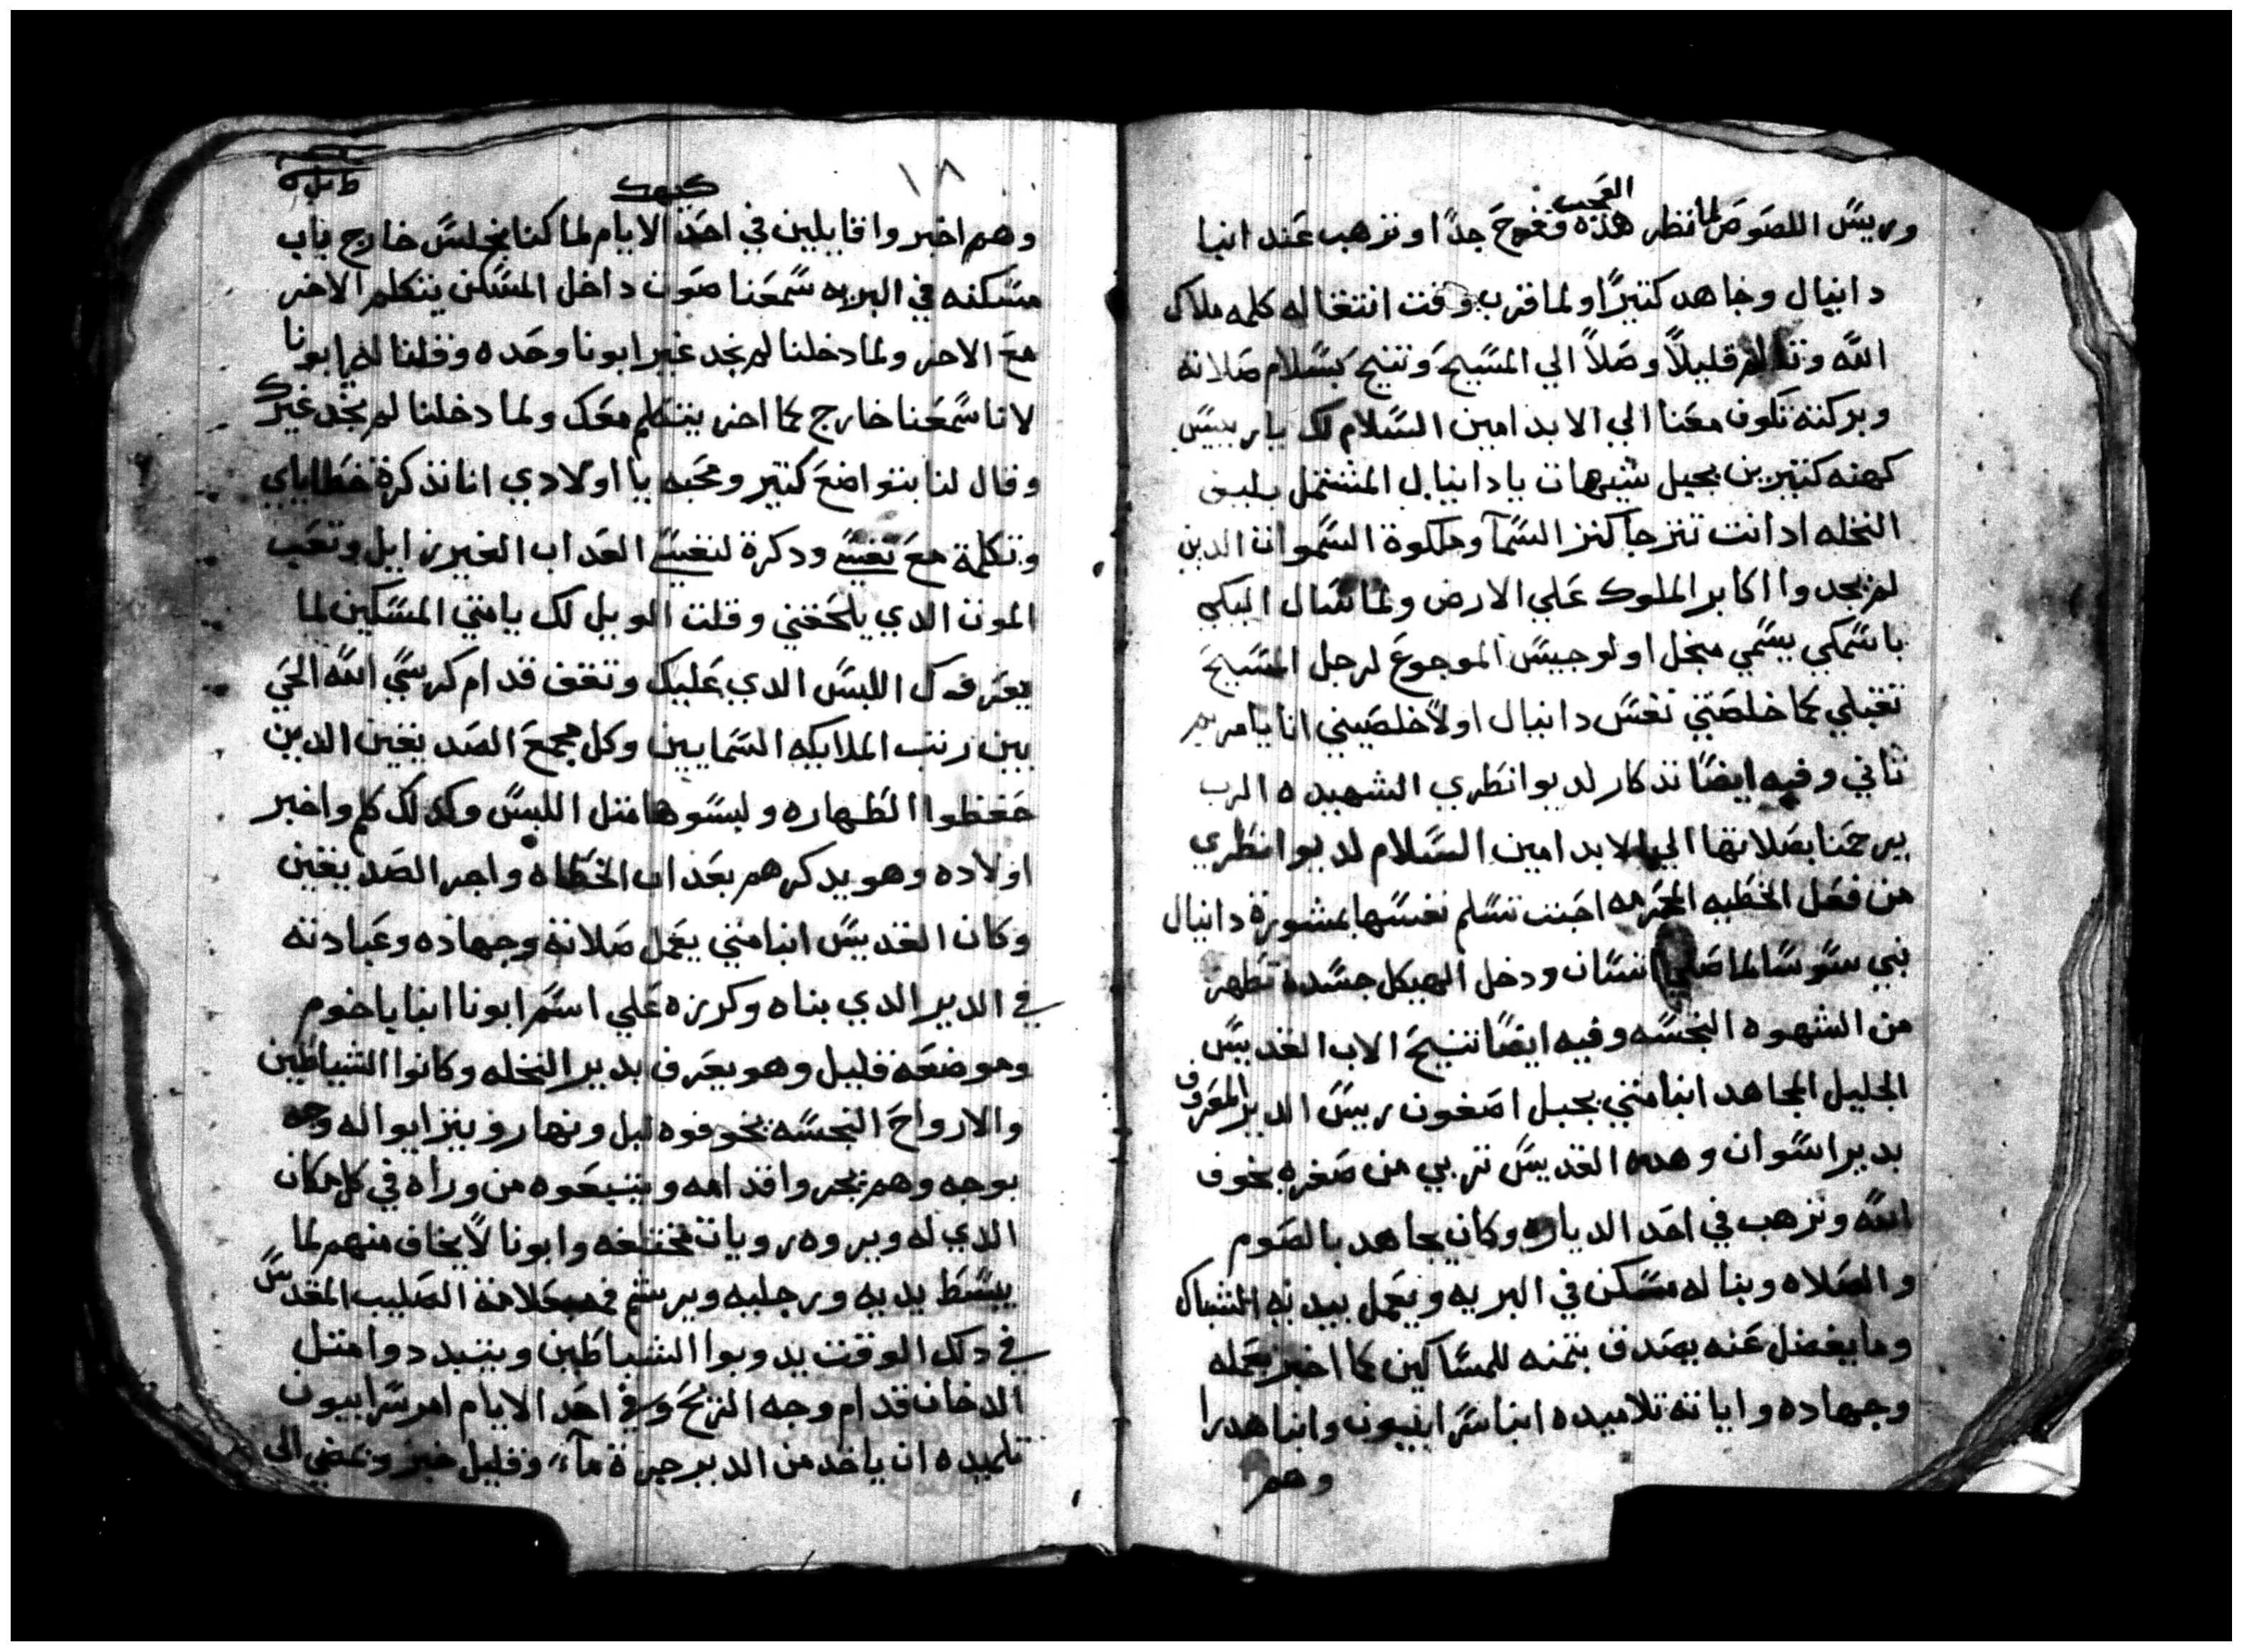 العجب
وريس اللصوص لما نظر هذه ففرح جدًا وترهب عند انبا
دانيال وجاهد كتيرًا ولما قرب وقت انتقاله كلمه ملاك
الله وتالم قليلاً وصلاً الي المسيح وتنيح بسلام صلاته
وبركته تكون معنا الي الابد امين السلام لك يا رييس
كهنه كتيرين بجبل شيهات يا دانيال المشتمل بليف
النخله ادانت تنزجا كنز السما وملكوة السموات الدين
لم يجدوا اكابر الملوك علي الارض ولما سال البكي
باسمكي يسمي منخل اولوجيس الموجوع لرجل المسيح
تقبلي كما خلصتي نفس دانيال اولاً خلصيني انا يا مريم
تاني وفيه ايضًا تدكار لديوانطري الشهيده الرب
يرحمنا بصلاتها الي الابد امين السلام لديوانطري
من فعل الخطيه المحرمه احبت تسلم نفسها بمشورة دانيال
نبي سوسا لما صلي انسان ودخل الهيكل جسده تطهر
من الشهوه النجسه وفيه ايضًا تنيح الاب القديس
الجليل المجاهد انبا متي بجبل اصفون رييس الدير المعروف
بدير اسوان وهده القديس تربي من صغره بخوف
الله وترهب في احد الدياره وكان يجاهد بالصوم
والصلاه وبنا له مسكن في البريه ويعمل بيديه الشباك
وما يفضل عنه يصدق بتمنه للمساكين كما اخبر بعمله
وجهاده واياته تلاميده انبا سرابيون وانبا هدرا
وهم
١٨
كيهك
وهم اخبروا قايلين في احد الايام لما كنا نجلس خارج باب
مسكنه في البريه سمعنا صوت داخل المسكن يتكلم الاخر
مع الاخر ولما دخلنا لم نجد غير ابونا وحده وقلنا له يا ابونا
لانا سمعنا خارج كما اخر يتكلم معك ولما دخلنا لم نجد غيرك
وقال لنا بتواضع كتير ومحبه يا اولادي انا تذكرة خطاياي
وتكلمة مع نفسي ودكرة لنفسي العداب الغير زايل وتعب
الموت الدي يلحقني وقلت الويل لك يا متي المسكين لما
يعرفوك اللبس الدي عليك وتقف قدام كرسي الله الحي
بين رتب الملايكه السمايين وكل مجمع الصديقين الدين
حفظوا الطهاره ولبسوها متل اللبس وكدلك كلم واخبر
اولاده وهو يدكرهم بعداب الخطاه واجر الصديقين
وكان القديس انبا متي يعمل صلاته وجهاده وعبادته
في الدير الدي بناه وكرزه علي اسم ابونا انبا باخوم
وموضعه قليل وهو يعرف بدير النخله وكانوا الشياطين
والارواح النجسه يخوفوه ليل ونهار ويتزايوا له وجه
بوجه وهم يجروا قدامه ويتبعوه من وراه في كل مكان
الدي له ويروه رويات مختلفه وابونا لا يخاف منهم لما
يبسط يديه ورجليه ويرشم فمه بعلامة الصليب المقدس
في دلك الوقت يدوبوا الشياطين ويتبددوا متل
الدخان قدام وجه الريح وفي احد الايام امر سرابيون
تلميده ان ياخد من الدير جرة مآء وقليل خبز وتمضي الى